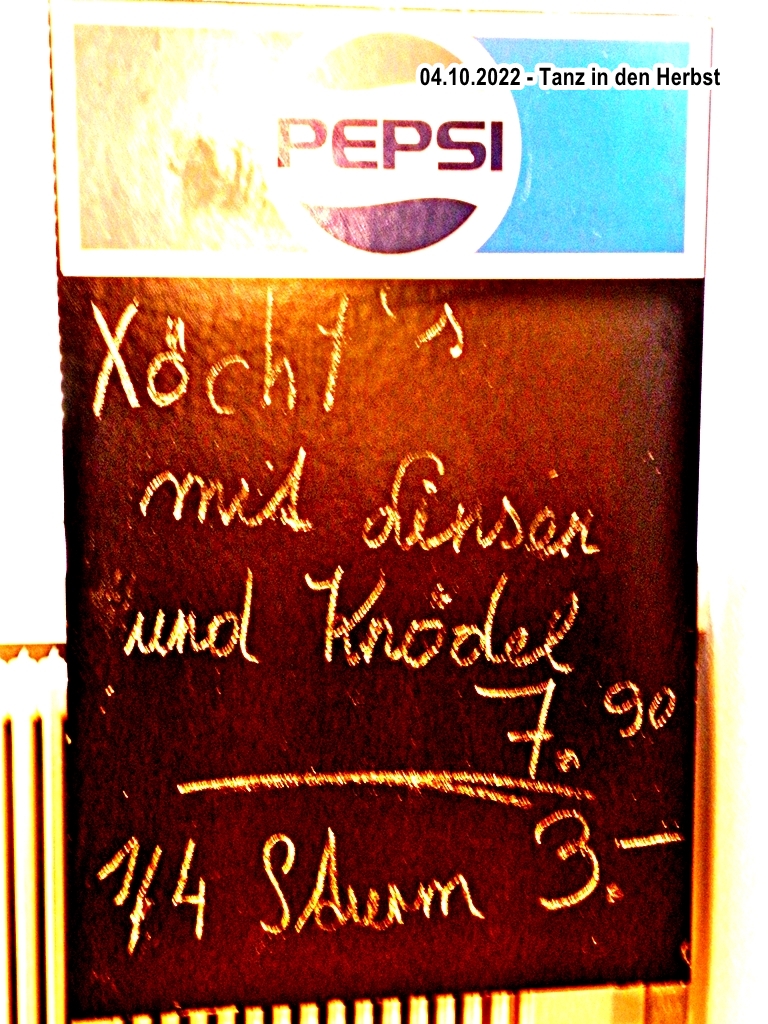 04.10.2022 - Tanz in den Herbst
PEPSI
Xöcht's
mit Linsen
und Knödel
7.90
1/4 Sturm 3.-